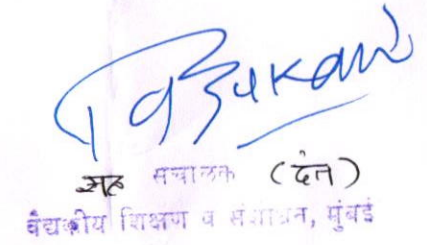 सह संचालक (दंत)
वैद्यकीय शिक्षण व संशोधन, मुंबई